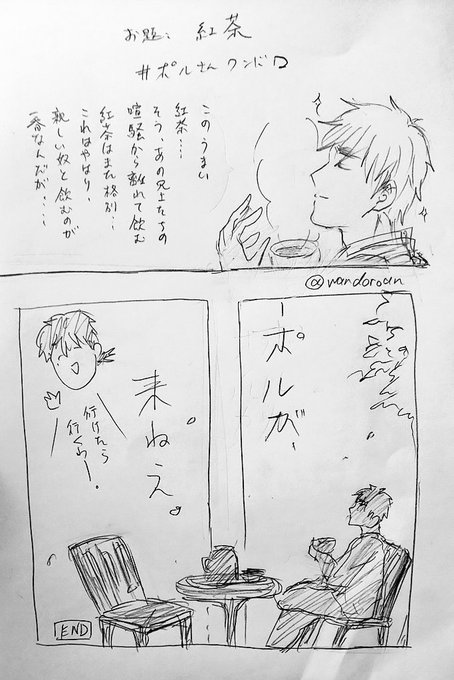 お題、紅茶
#ポルさんワンドロ
このうまい
紅茶…
そう、あの兄上たちの
喧騒から離れて飲む
紅茶はまた格別…
これはやはり、
親しい奴と飲むのが
一番なんだが…
@wandoroan
ーポルが、
来ねえ。
行けたら
行くわー。
END